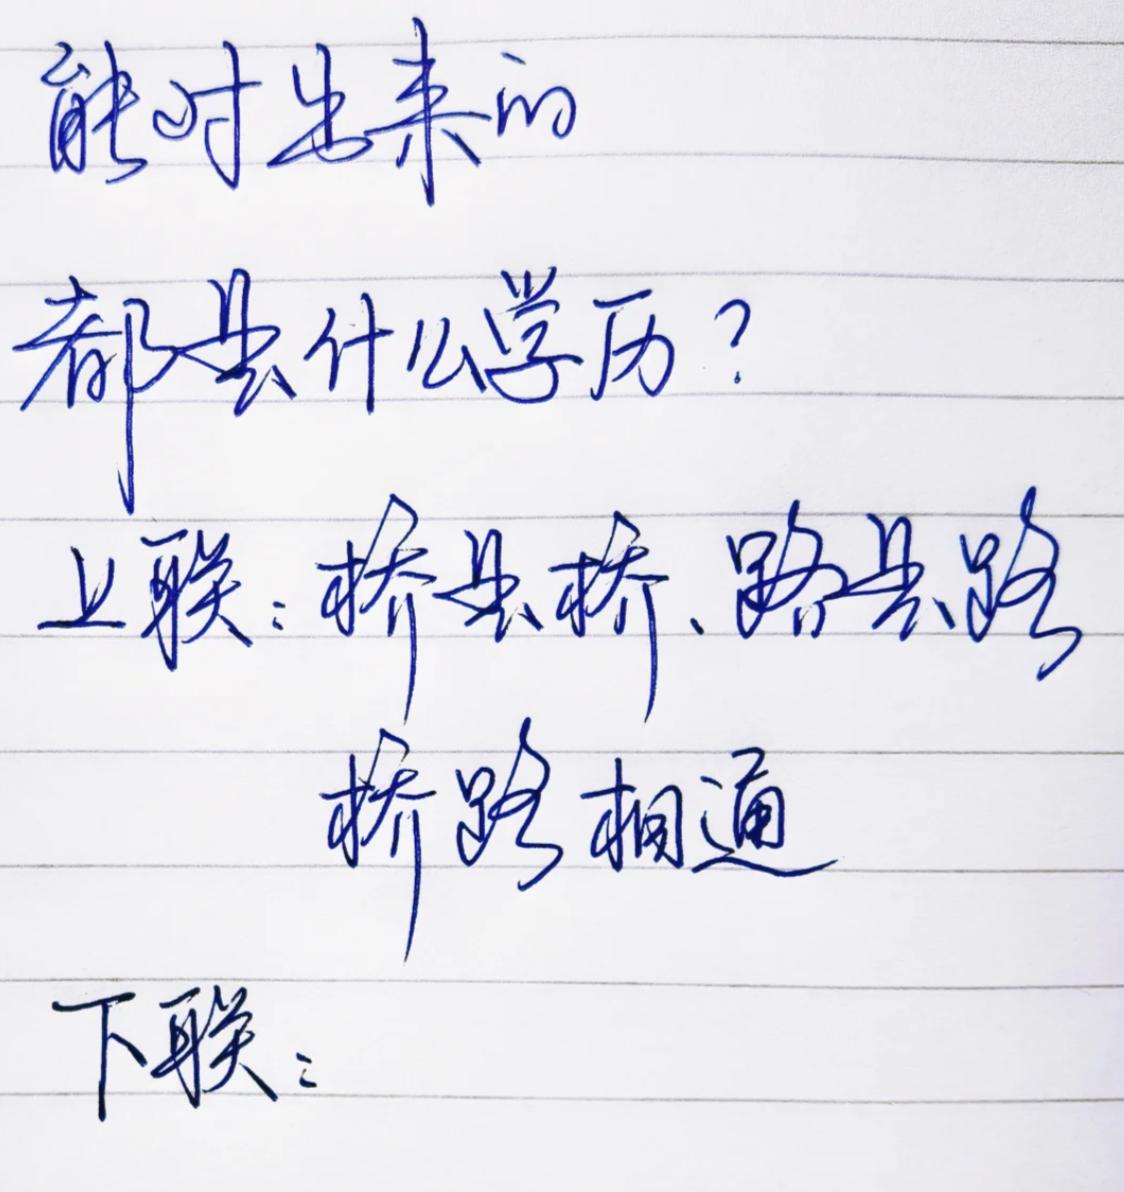 能对出来的
都是什么学历?
上联:桥是桥、路是路
桥路相通
下联: